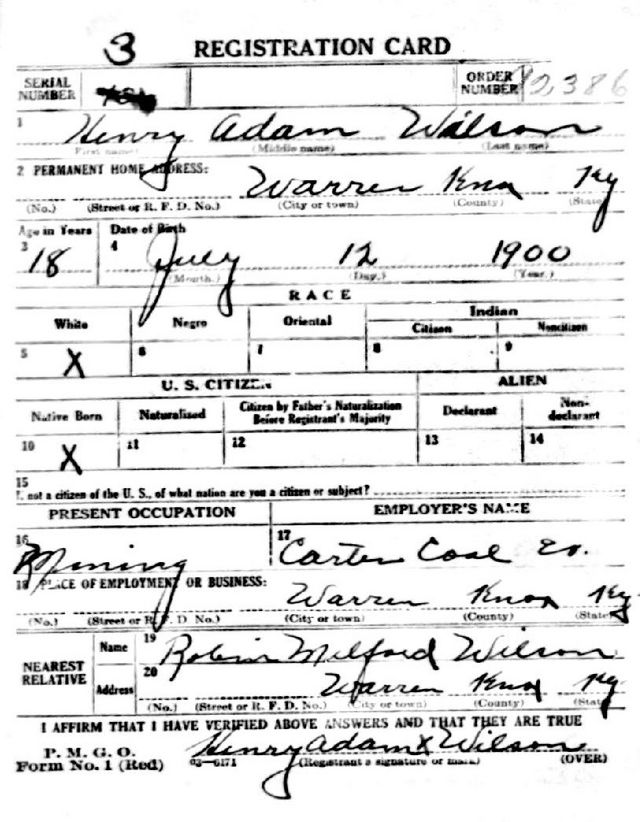 3 REGISTRATION CARD
SERIAL NUMBER ORDER NUMBER 2386
1 Henry Adam Wilson
(First name) (Middle name) (Last name)
2 PERMANENT HOME ADDRESS: Warren Knox Ky
(No.) (Street or R. F. D. No.) (City or town) (County) (State)
Age in Years Date of Birth
3 18 4 July 12 1900
(Month.) (Day.) (Year.)
RACE
White Negro Oriental Indian
Citizen Noncitizen
5 X 6 7 8 9
U. S. CITIZEN ALIEN
Native Born Naturalized Citizen by Father's Naturalization Before Registrant's Majority Declarant Non-declarant
10 X 11 12 13 14
15
If not a citizen of the U. S., of what nation are you a citizen or subject?
PRESENT OCCUPATION EMPLOYER'S NAME
16 Mining 17 Carter Coal Co.
18 PLACE OF EMPLOYMENT OR BUSINESS: Warren Knox Ky
(No.) (Street or R. F. D. No.) (City or town) (County) (State)
NEAREST RELATIVE Name 19 Robin Milford Wilson
Address 20 Warren Knox Ky
(No.) (Street or R. F. D. No.) (City or town) (County) (State)
I AFFIRM THAT I HAVE VERIFIED ABOVE ANSWERS AND THAT THEY ARE TRUE
P. M. G. O.
Form No. 1 (Red) 03-6171 Henry Adam X Wilson
(Registrant's signature or mark) (OVER)